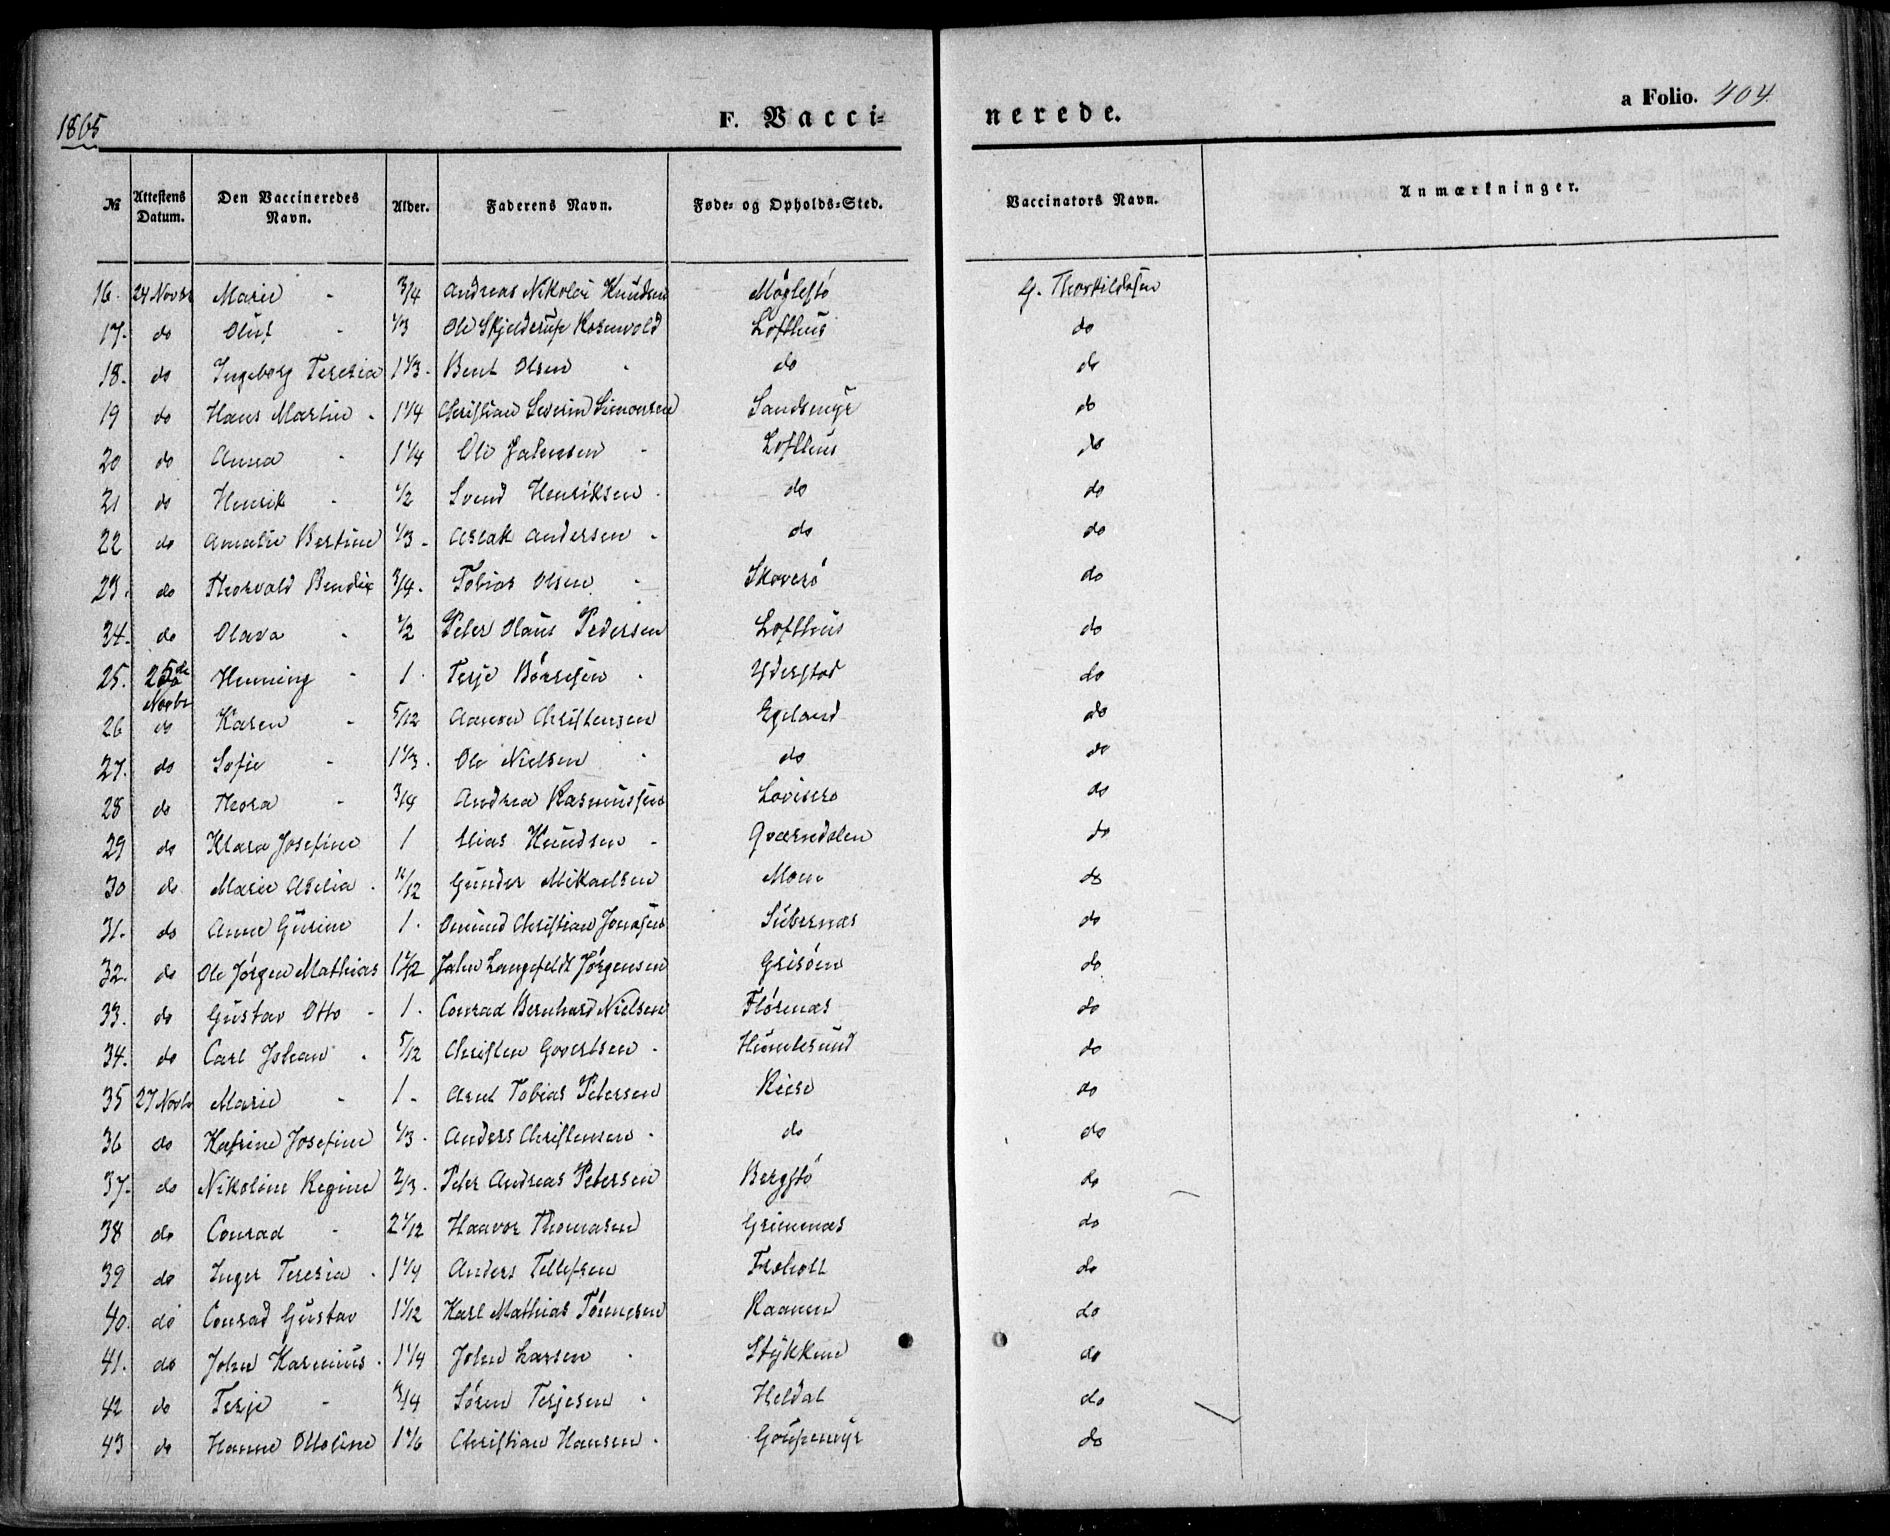 1865
F. Vacci-
nerede.
a Folio. 404.
№ Attestens Datum. Den Vaccineredes Navn. Alder. Faderens Navn. Føde- og Opholds-Sted. Vaccinators Navn. Anmærkninger.
16. 24 Novbr Marie - 3/4 Andreas Nikolai Knudsen Møglestø G. Thorkildsen
17. do Oluf - 1/3 Ole Skjelderup Rosenvold Lofthus do
18. do Ingeborg Teresia 1 1/3. Bent Olsen - do do
19 do Hans Martin - 1 1/4 Christian Severin Simonsen Sandsmyr do
20 do Anna - 1 1/4 Ole Jahnsen - Lofthus do
21 do Henrik - 1/2 Svend Henriksen - do do
22 do Amalie Bertine 1/3 - Aslak Andersen - do do
23. do Thorvald Bendix 3/4. Tobias Olsen - Skoverø do
34. do Olava - 1/2 Peter Olaus Pedersen Lofthus do
25. 25de Novbr Henning - 1. Terje Børresen - Yderstad do
26 do Karen - 5/12 Aanon Christensen Egeland do
27. do Sofie - 1 1/3. Ole Nielsen - do do
28 do Thora - 3/4 Andrea Rasmussen Lovisero do
29 do Klara Josefine 1 Elias Knudsen - Qværndalen do
30 do Marie Aselia. 11/12 Gunder Mikaelsen Moen do
31. do Anne Gurine 1. Omund Christian Jonassen Subernæs do
32. do Ole Jørgen Mathias 1 1/2 Jahn Langfeldt Jørgensen Grisøen do
33. do Gustav Otto - 1. Conrad Bernhard Nielsen Flørenæs do
34. do Carl Johan . 5/12 Christen Govertsen - Humlesund do
35 27 Novbr Marie - 1 - Arnt Tobias Petersen Riese do
36 do Katrine Josefine 1/3. Anders Christensen - do do
37. do Nikoline Regine 2/3. Peter Andreas Petersen Bergstø do
38 do Conrad - 2 1/12 Haavor Thomasen Grimenæs do
39 do Inger Teresia . 1 1/4 Anders Tellefsen Froholt do
40. do Conrad Gustav 1 1/12 Karl Mathias Tønnesen Raanen do
41. do John Karenius . 1 1/4 John Larsen - Stykkene do
42 do Terje - 3/4 Søren Terjesen - Heldal do
43 do Hanne Ottoline 1 1/6 Christian Hansen - Goupemyr do